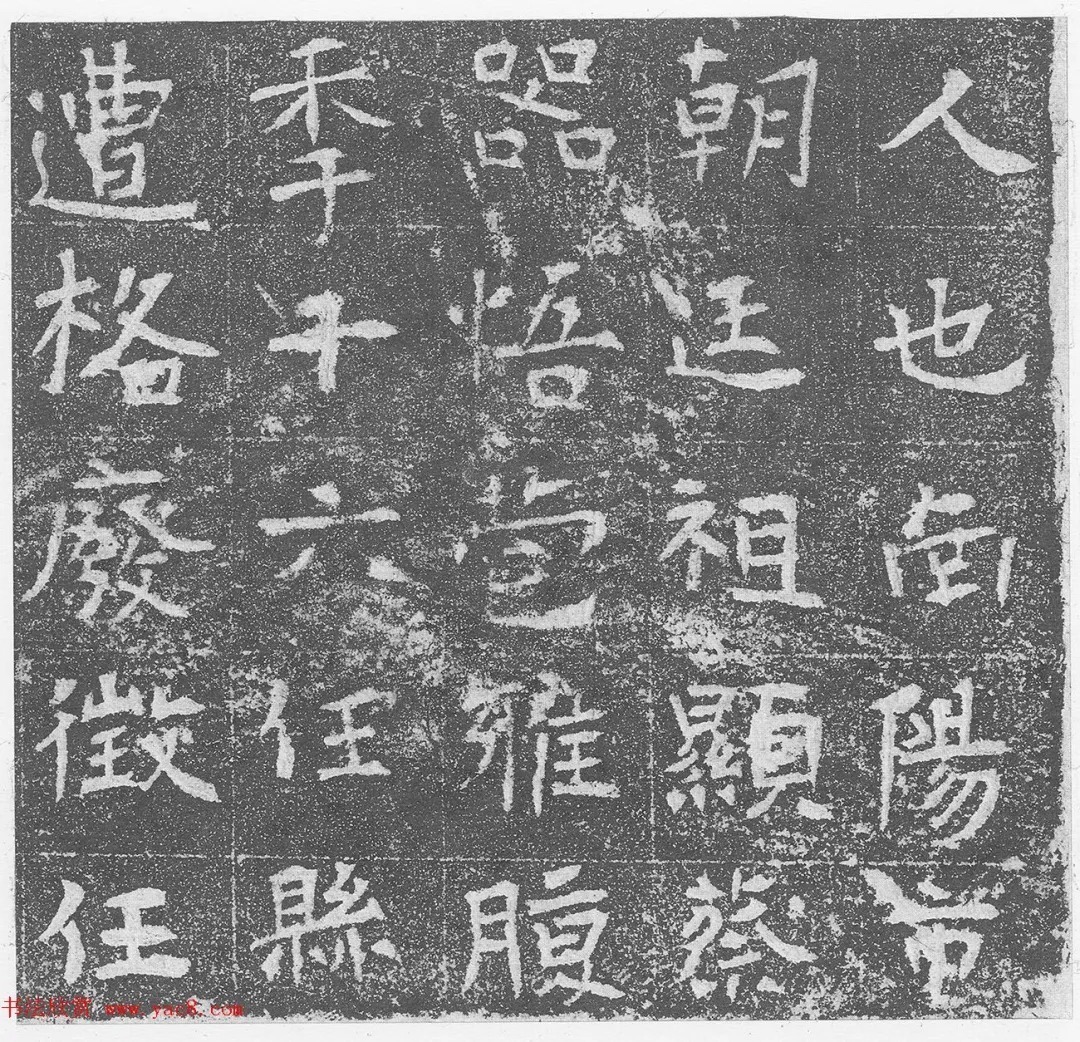 人也南陽帝
朝廷祖顯蔡
器悟雅腹
秊十六任縣
遭格廢徵任
书法欣赏 www.yac8.com